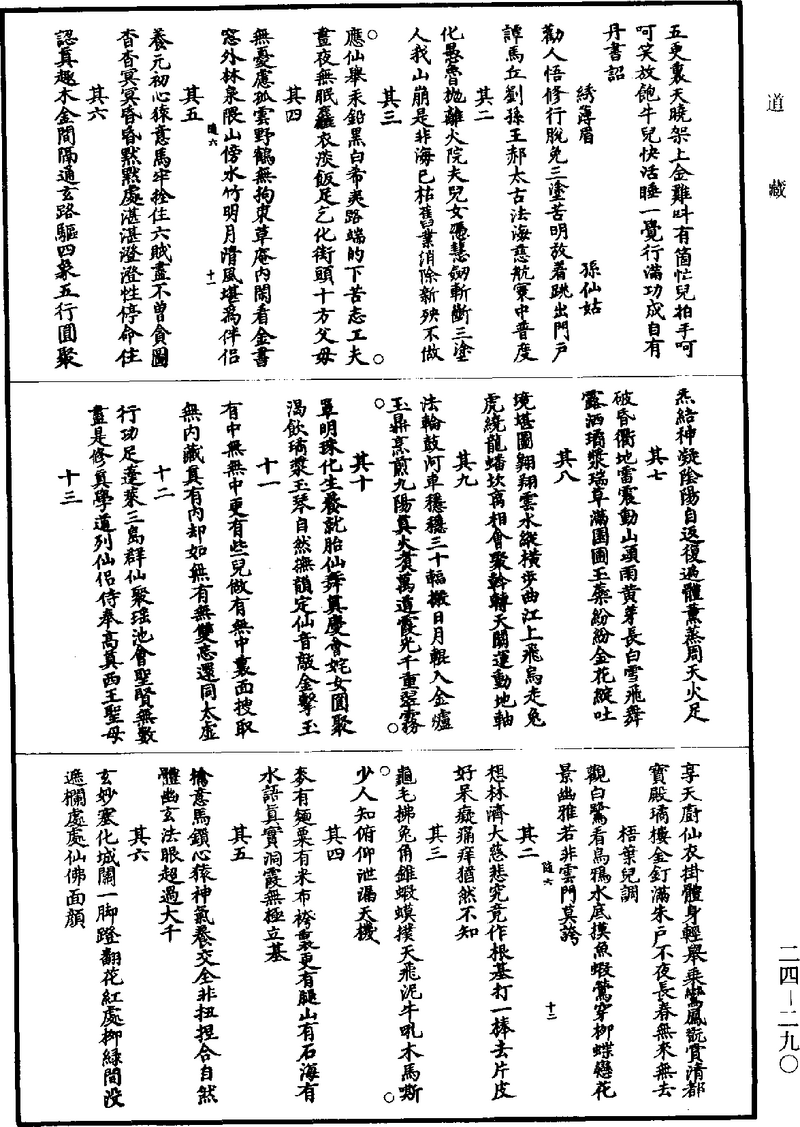 道藏
五更裏天曉架上金雞呌有箇忙兒拍手呵
呵笑放飽牛兒快活睡一覺行滿功成自有
丹書詔
綉薄眉
孫仙姑
勸人悟修行脫免三塗苦明放着跳出門戶
譚馬丘劉孫王郝太古法海慈航寰中普度
其二
化愚魯拋離火院夫兒女憑慧劒斬斷三塗
人我山崩是非海已枯舊業消除新殃不做
其三
應仙舉汞鉛黑白希夷路端的下苦志工夫
晝夜無眠麤衣淡飯足乞化街頭十方父母
其四
無憂慮孤雲野鶴無拘束草庵內閑看金書
窓外林泉隈山傍水竹明月清風堪爲伴侶
随六
十一
其五
養元初心猿意馬牢拴住六賊盡不曾貪圖
杳杳冥冥昏昏默默處湛湛澄澄性停命住
其六
認真趣木金間隔通玄路驅四象五行圓聚
炁結神凝陰陽自返復遍體薰蒸周天火足
其七
破昏衢地雷震動山頭雨黄芽長白雪飛舞
露洒璚漿瑞草滿園圃玉蘂紛紛金花綻吐
其八
境堪圖翱翔雲水縱橫步曲江上飛烏走兔
虎繞龍蟠坎离相會聚斡轉天關運動地軸
其九
法輪鼓河車穩穩三十輻搬日月輥入金爐
玉鼎烹煎九陽真火煑萬道霞光千重翠霧
其十
罩明珠化生養就胎仙舞真慶會姹女圓聚
渴飲璚漿玉琴自然撫韻定仙音敲金擊玉
十一
有中無無中更有些兒做有無中裏面搜取
無內藏真有內却如無有無雙忘還同太虛
十二
行功足蓬萊三島群仙聚瑶池會聖賢無數
盡是修真學道列仙侶侍奉高真西王聖母
十三
享天廚仙衣掛體身輕舉乘鸞鳳翫賞清都
寶殿璚樓金釘滿朱戶不夜長春無來無去
梧葉兒調
觀白鷺看烏鴉水底摸魚蝦鶯穿柳蝶戀花
景幽雅若非雲門莫誇
随六
十二
其二
想林濟大慈悲究竟作根基打一棒去片皮
好呆癡痛痒猶然不知
其三
龜毛拂兔角錐蝦蟆撲天飛泥牛吼木馬嘶
少人知俯仰泄漏天機
其四
麥有麵粟有米布袴裏更有腿山有石海有
水語真實洞霞無極立基
其五
擒意馬鎖心猿神氣養交全非扭捏合自然
體幽玄法眼超過大千
其六
玄妙寨化城闌一脚蹬翻花紅處柳綠間没
遮欄處處仙佛面顏
二四-二九〇